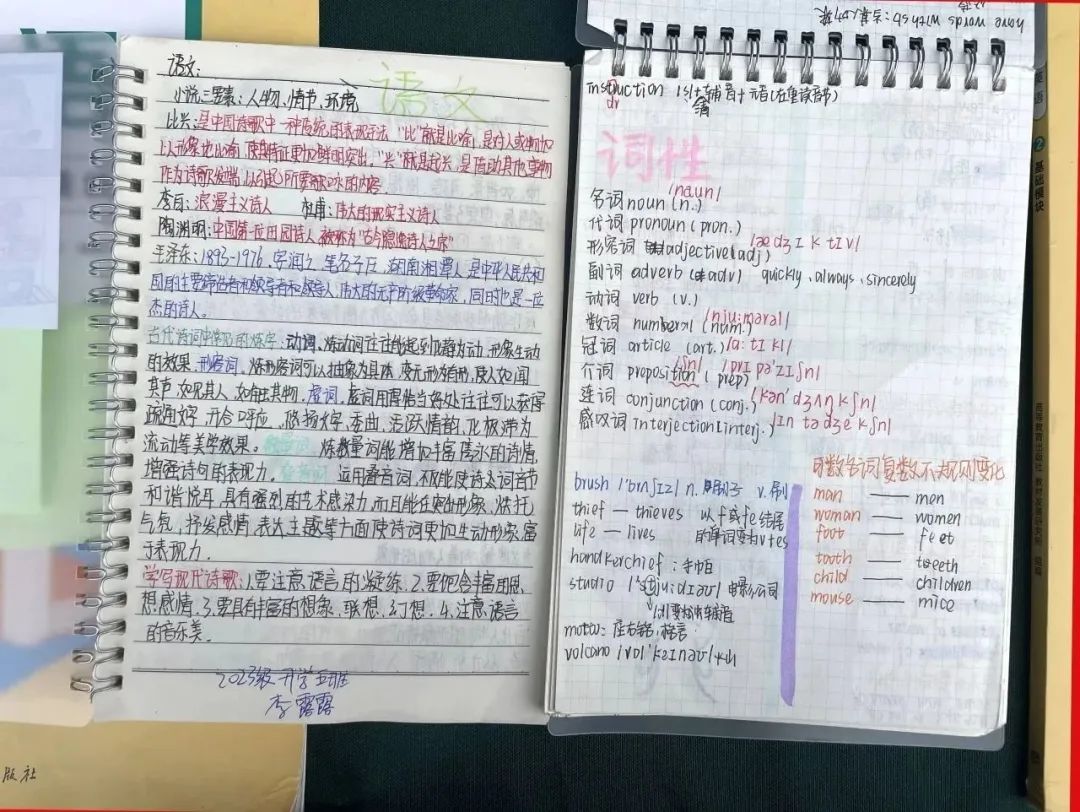 语文:
语文
小说三要素：人物、情节、环境
比兴：是中国诗歌中一种传统的表现手法，"比"就是比喻，是对人或物加
以形象地比喻，使其特征更加鲜明突出。"兴"就是起兴，是借助其他事物
作为诗歌发端，以引起所要歌咏的内容
李白：浪漫主义诗人 杜甫：伟大的现实主义诗人
陶渊明：中国第一位田园诗人，被称为"古今隐逸诗人之宗"
毛泽东：1893-1976，字润之，笔名子任，湖南湘潭人，是中华人民共和
国的主要缔造者和领导人，伟大的无产阶级革命家，同时也是一位
杰的诗人。
古代诗词中常见的炼字：动词，炼动词往往能起到化静为动，形象生动
的效果。形容词，炼形容词可以抽象为具体，变无形为有形，使人如闻
其声，如见其人，如触其物。虚词，虚词用得恰当好处往往可以获得
疏通文字，开合呼应，悠扬委曲，活跃情韵，化板滞为
流动等美学效果。数量词，炼数量词能增加丰富隽永的诗情，
增强诗句的表现力。叠音词，运用叠音词，不仅能使诗文词音节
和谐悦耳，具有强烈的艺术感染力，而且能在刻画形象，烘托
气氛，抒发感情，表达主题等方面使诗词更加生动形象，富
于表现力。
学写现代诗歌：1.要注意语言的凝练。2.要饱含丰富的思
想感情。3.要具有丰富的想象、联想、幻想。4.注意语言
的音乐美。
2023级升学五班
李露露
have words with sb:与某人吵架
instruction |s|+辅音+元音(在重读音节)
dr 清
词性
名词 noun (n.) /naun/
代词 pronoun (pron.)
形容词 adjective(adj) /'æ dʒɪk tɪv/
副词 adverb (adv) quickly、always、sincerely
动词 verb (v.)
数词 numberal (num.) /nju:mərəl/
冠词 article (art.) /a: tɪ kl/
介词 proposition (prep) /prɪ pə'zɪʃn/
连词 conjunction (conj.) /kən'dʒʌŋkʃn/
感叹词 interjection(interj.) /ɪn tədʒe kʃn/
可数名词复数不规则变化
man —— men
woman —— women
foot —— feet
tooth —— tweeth
child —— children
mouse —— mice
brush n.刷子 v.刷
thief — thieves 以f或fe结尾
life — lives 的单词变为v+es
handkerchief：手帕
studio 电影公司
motto：座右铭，格言
volcano 火山
英语
2
基础模块
高等教育出版社
版社